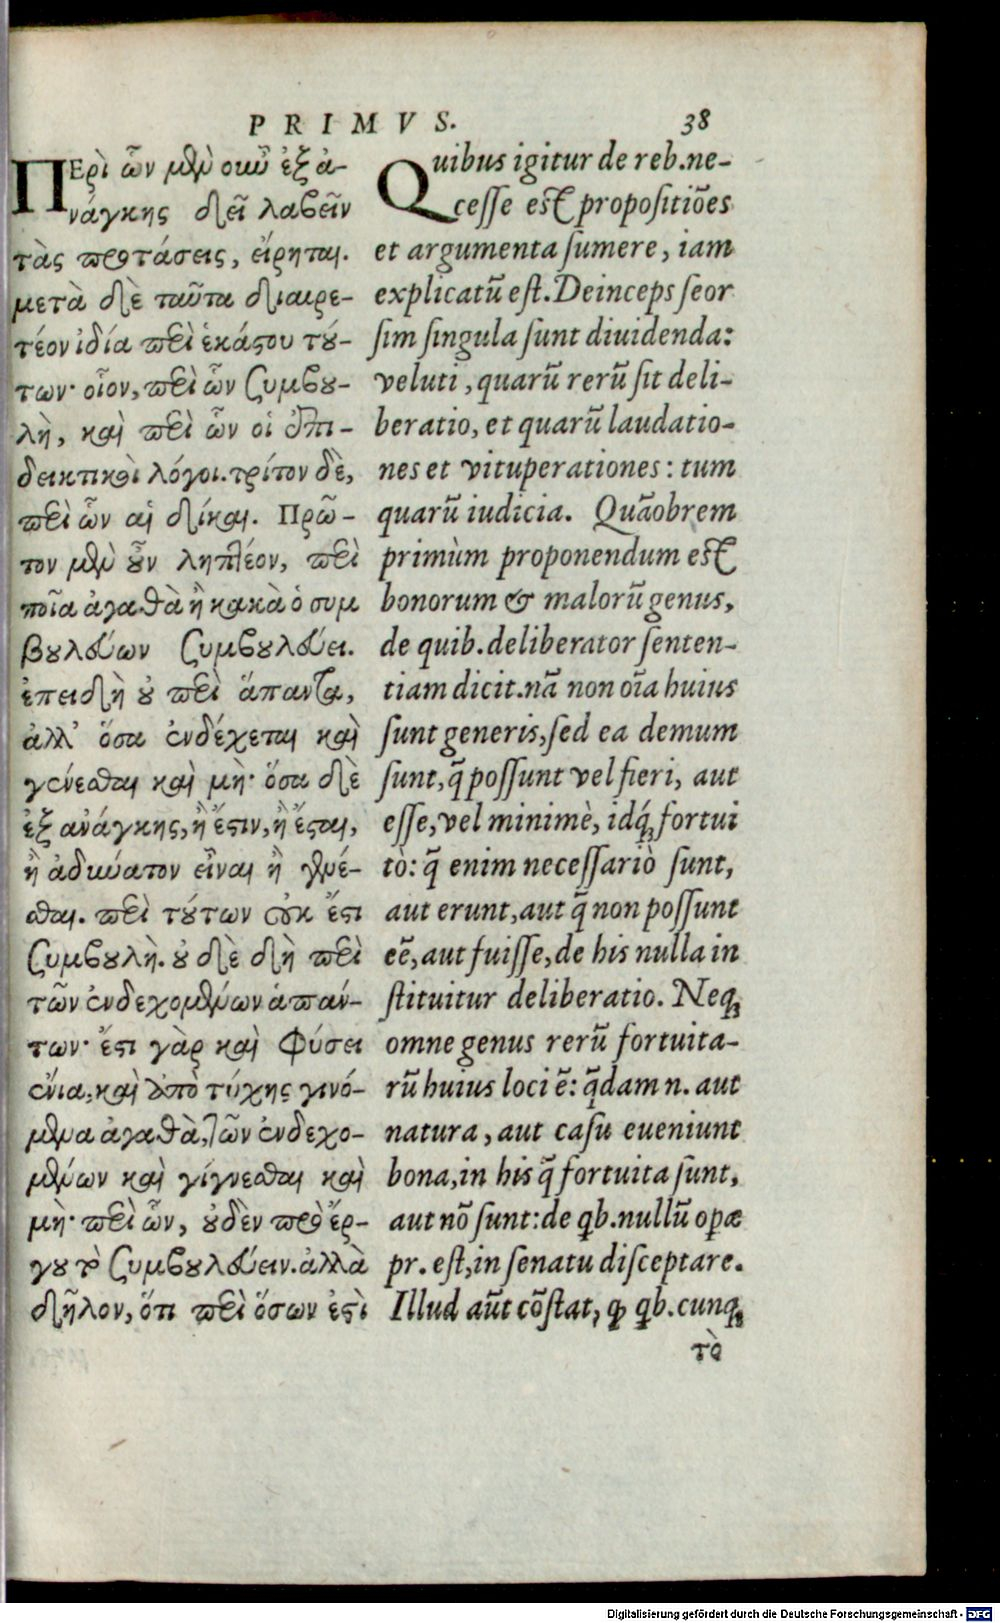 PRIMVS.
38
ΠΕρὶ ὧν μὲν οὖν ἐξ ἀ-
νάγκης δεῖ λαβεῖν
τὰς προτάσεις, εἴρηται.
μετὰ δὲ ταῦτα διαιρε-
τέον ἰδία περὶ ἑκάστου τού-
των· οἷον, περὶ ὧν συμβου-
λὴ, καὶ περὶ ὧν οἱ ἐπι-
δεικτικοὶ λόγοι. τρίτον δὲ,
περὶ ὧν αἱ δίκαι. Πρῶ-
τον μὲν οὖν ληπτέον, περὶ
ποῖα ἀγαθὰ ἢ κακὰ ὁ συμ
βουλεύων συμβουλεύει.
ἐπειδὴ οὐ περὶ ἅπαντα,
ἀλλ' ὅσα ἐνδέχεται καὶ
γενέσθαι καὶ μή· ὅσα δὲ
ἐξ ἀνάγκης, ἢ ἔστιν, ἢ ἔσται,
ἢ ἀδύνατον εἶναι ἢ γενέ-
σθαι. περὶ τούτων οὐκ ἔστι
συμβουλὴ. οὐ δὲ δὴ περὶ
τῶν ἐνδεχομένων ἁπάν-
των· ἔστι γὰρ καὶ φύσει
ἔνια, καὶ ἀπὸ τύχης γινό-
μενα ἀγαθὰ, τῶν ἐνδεχο-
μένων καὶ γίγνεσθαι καὶ
μή· περὶ ὧν, οὐδὲν πρὸ ἔρ-
γου τὸ συμβουλεύειν. ἀλλὰ
δῆλον, ὅτι περὶ ὅσων ἐστὶ
Quibus igitur de reb. ne-
cesse est propositiões
et argumenta sumere, iam
explicatũ est. Deinceps seor
sim singula sunt diuidenda:
veluti, quarũ rerũ sit deli-
beratio, et quarũ laudatio-
nes et vituperationes: tum
quarũ iudicia. Quãobrem
primùm proponendum est
bonorum & malorũ genus,
de quib. deliberator senten-
tiam dicit. nã non oĩa huius
sunt generis, sed ea demum
sunt, q̃ possunt vel fieri, aut
esse, vel minimè, idq́; fortui
tò: q̃ enim necessariò sunt,
aut erunt, aut q̃ non possunt
eẽ, aut fuisse, de his nulla in
stituitur deliberatio. Neq;
omne genus rerũ fortuita-
rũ huius loci ẽ: q̃dam n. aut
natura, aut casu eueniunt
bona, in his q̃ fortuita sunt,
aut nõ sunt: de qb. nullũ oꝑæ
pr. est, in senatu disceptare.
Illud aũt cõstat, ꝙ qb. cunq;
τὸ
Digitalisierung gefördert durch die Deutsche Forschungsgemeinschaft - DFG